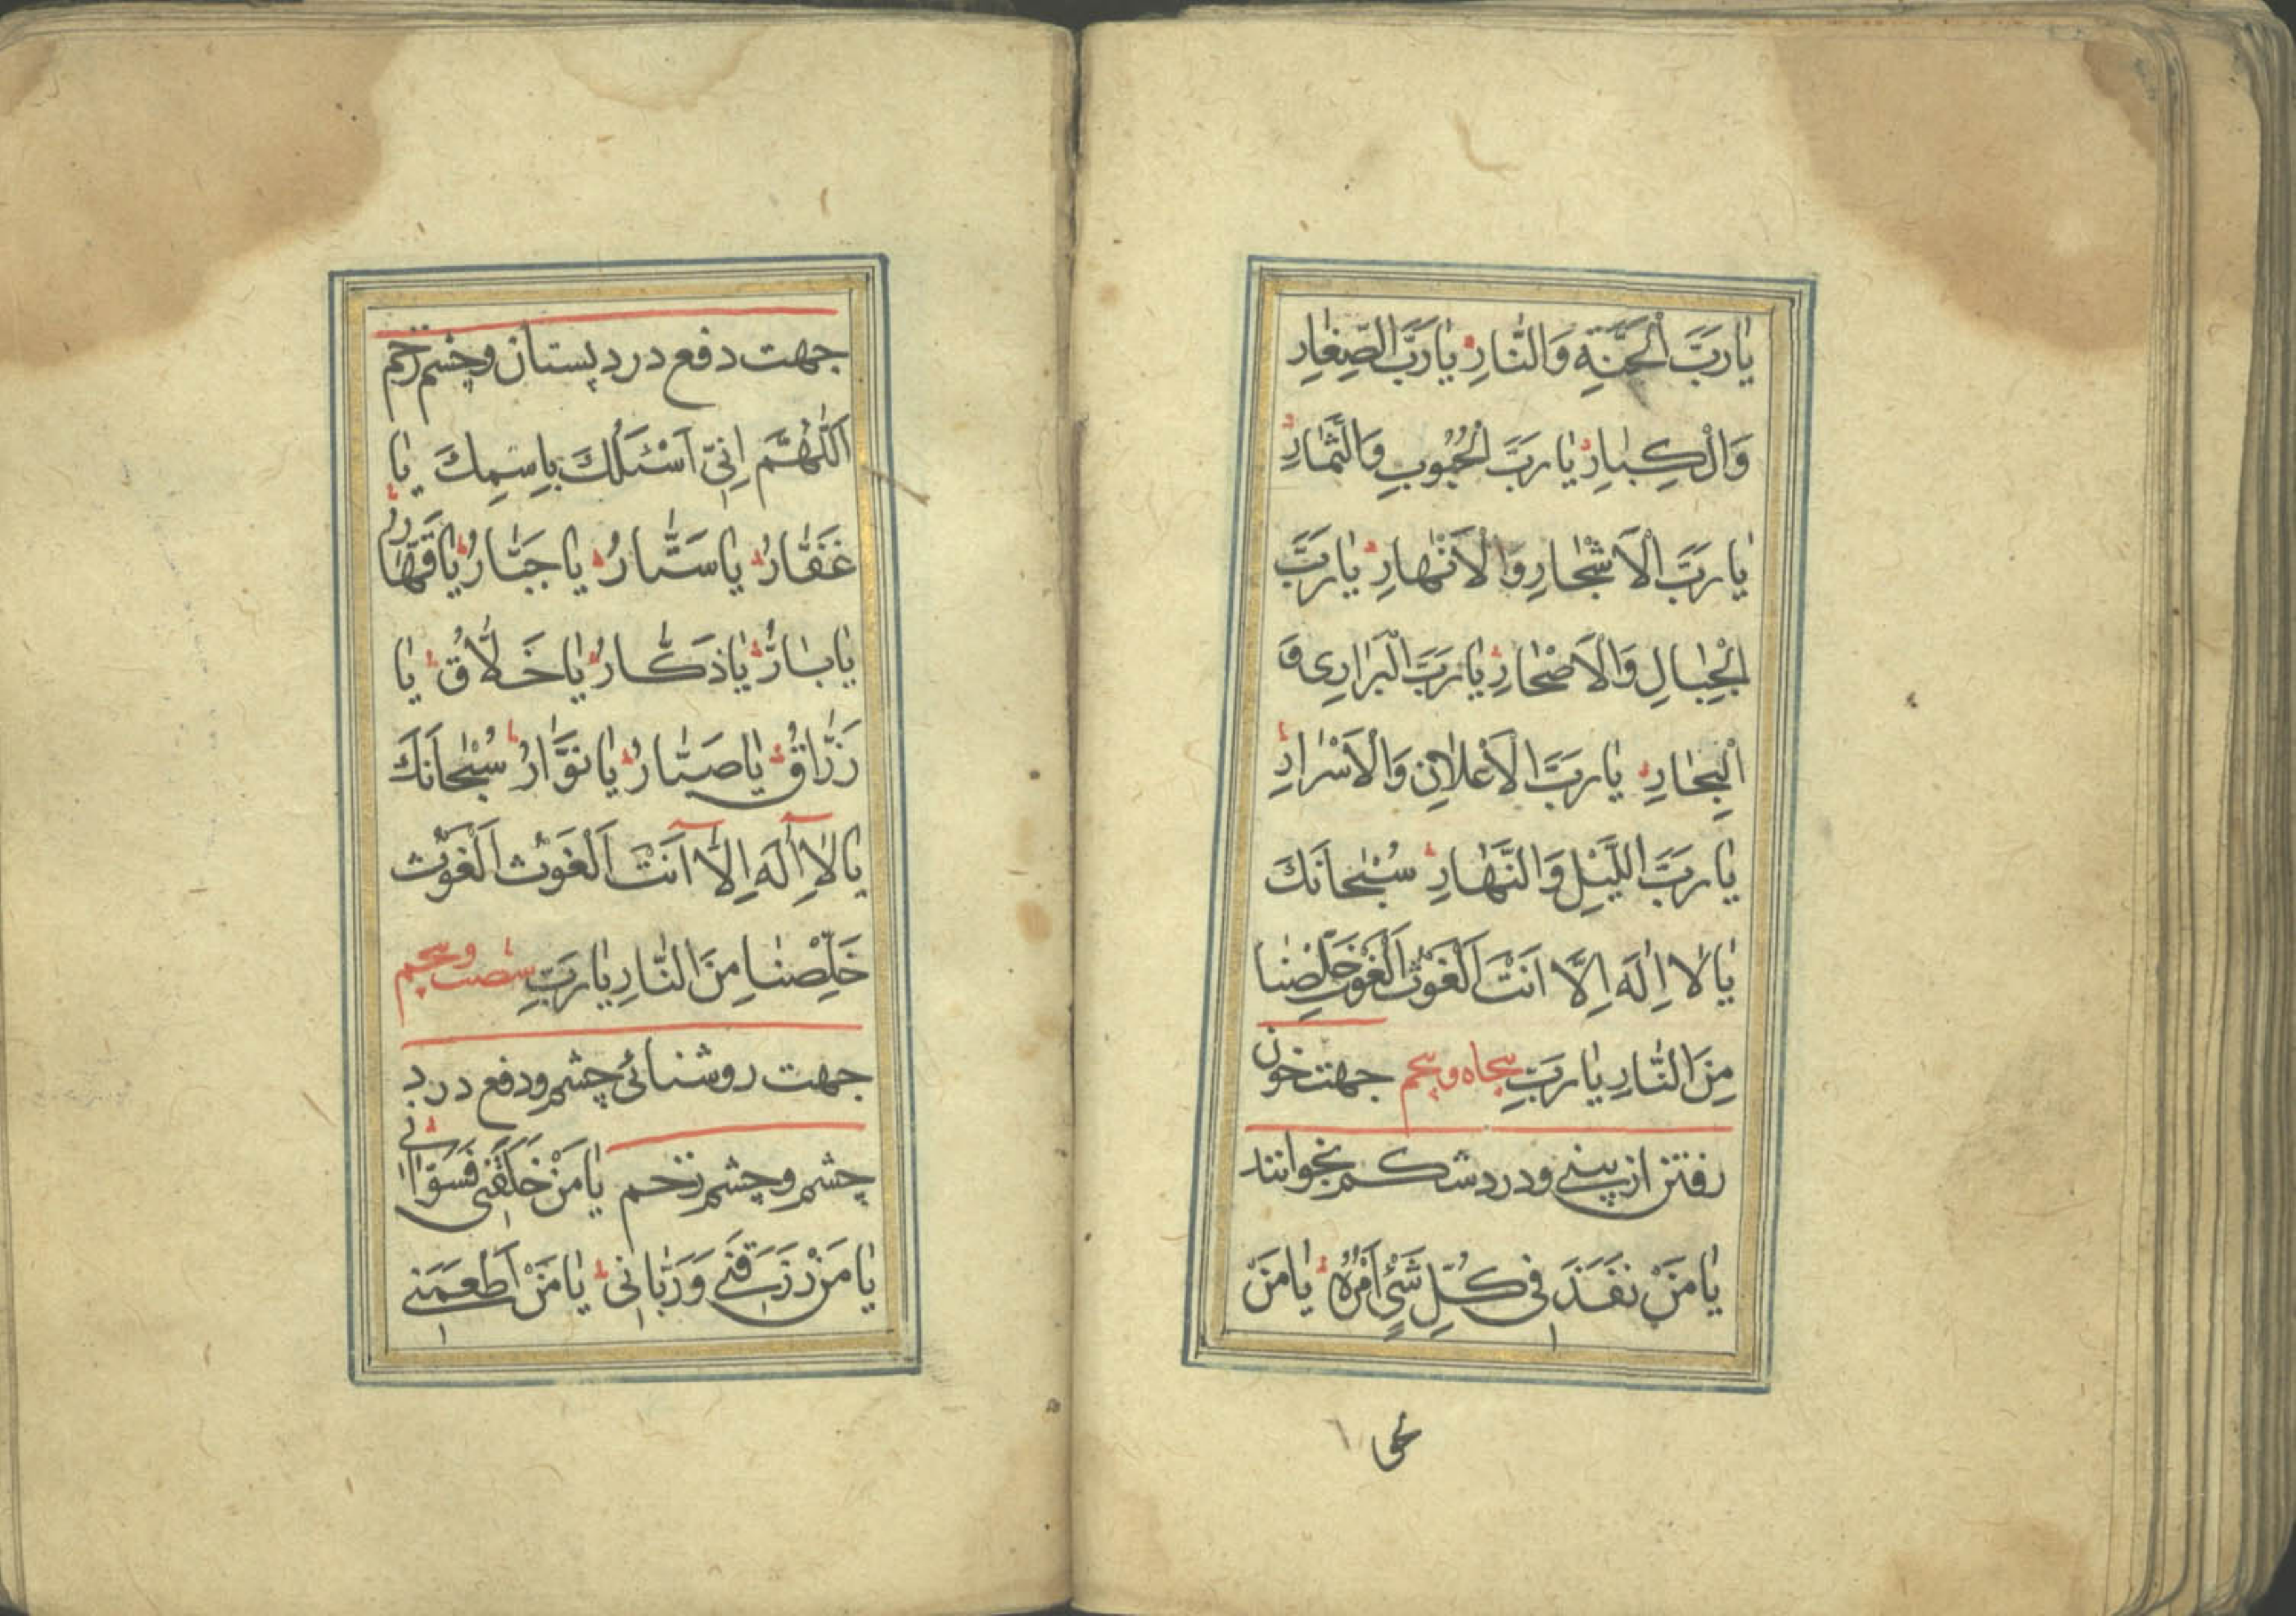 يٰا رَبَّ الْجَنَّةِ وَالنّٰارِ يٰا رَبَّ الصِّغٰارِ
وَالْكِبٰارِ يٰا رَبَّ الْحُبُوبِ وَالثِّمٰارِ
يٰا رَبَّ الْاَشْجٰارِ وَالْاَنْهٰارِ يٰا رَبَّ
الْجِبٰالِ وَالْاَصْحٰارِ يٰا رَبَّ الْبَرٰارِى وَ
الْبِحٰارِ يٰا رَبَّ الْاَعْلانِ وَالْاَسْرٰارِ
يٰا رَبَّ اللَّيْلِ وَالنَّهٰارِ سُبْحٰانَكَ
يٰا لا اِلٰهَ اِلَّا اَنْتَ اَلْغَوْثَ اَلْغَوْثَ خَلِّصْنٰا
مِنَ النّٰارِ يٰا رَبِّ پنجاه و پنجم جهت خون
رفتن از بینى و درد شکم بخوانند
يٰا مَنْ نَفَذَ فى كُلِّ شَىْءٍ اَمْرُهُ يٰا مَنْ
جهت دفع درد پستان و چشم زخم
اَللّٰهُمَّ اِنّى اَسْئَلُكَ بِاسِمِكَ يٰا
غَفّٰارُ يٰا سَتّٰارُ يٰا جَبّٰارُ يٰا قَهّٰارُ
يٰا بٰارُّ يٰا ذَكّٰارُ يٰا خَلّاٰقُ يٰا
رَزّٰاقُ يٰا صَبّٰارُ يٰا نَوّٰارُ سُبْحٰانَكَ
يٰا لا اِلٰهَ اِلّا اَنْتَ اَلْغَوْثَ اَلْغَوْثَ
خَلِّصْنٰا مِنَ النّٰارِ يٰا رَبِّ شصت و پنجم
جهت روشنائى چشم و دفع درد
چشم و چشم زخم يٰا مَنْ خَلَقَنى فَسَوّٰانى
يٰا مَنْ رَزَقَنى وَ رَبّٰانى يٰا مَنْ اَطْعَمَنى